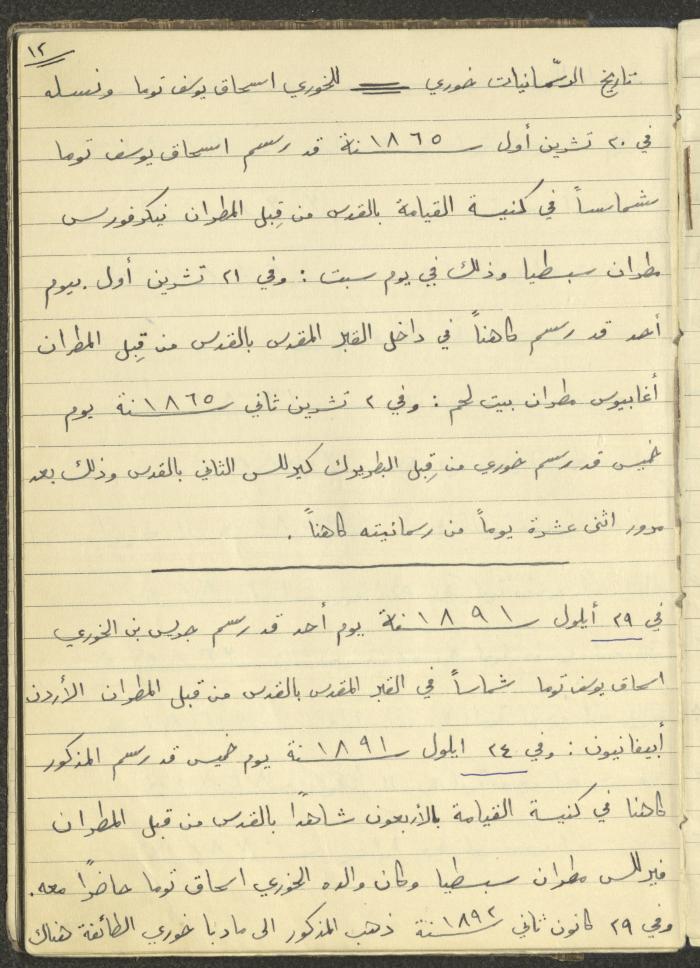 ١٢
تاريخ الرسمانيات خوري = للخوري اسحاق يوسف توما ونسله
في ٢٠ تشرين أول سنة ١٨٦٥ قد رسم اسحاق يوسف توما
شماساً في كنيسة القيامة بالقدس من قِبل المطران نيكوفورس
مطران سبسطيا وذلك في يوم سبت : وفي ٢١ تشرين أول بيوم
أحد قد رسم كاهناً في داخل القبر المقدس بالقدس من قِبل المطران
أغابيوس مطران بيت لحم : وفي ٢ تشرين ثاني سنة ١٨٦٥ يوم
خميس قد رسم خوري من قِبل البطريرك كيرللس الثاني بالقدس وذلك بعد
مرور اثنى عشرة يوماً من رسمانيته كاهناً .
في ٢٩ أيلول سنة ١٨٩١ يوم أحد قد رسم جريس بن الخوري
اسحاق يوسف توما شماساً في القبر المقدس بالقدس من قبل المطران الأردن
أبيفانيون : وفي ٢٤ ايلول سنة ١٨٩١ يوم خميس قد رسم المذكور
كاهنا في كنيسة القيامة بالأربعون شاهداً بالقدس من قبل المطران
مطران سبسطيا وكان والده الخوري اسحاق توما حاضراً معه .
وفي ٢٩ كانون ثاني سنة ١٨٩٢ ذهب المذكور الى مادبا خوري الطائفة هناك